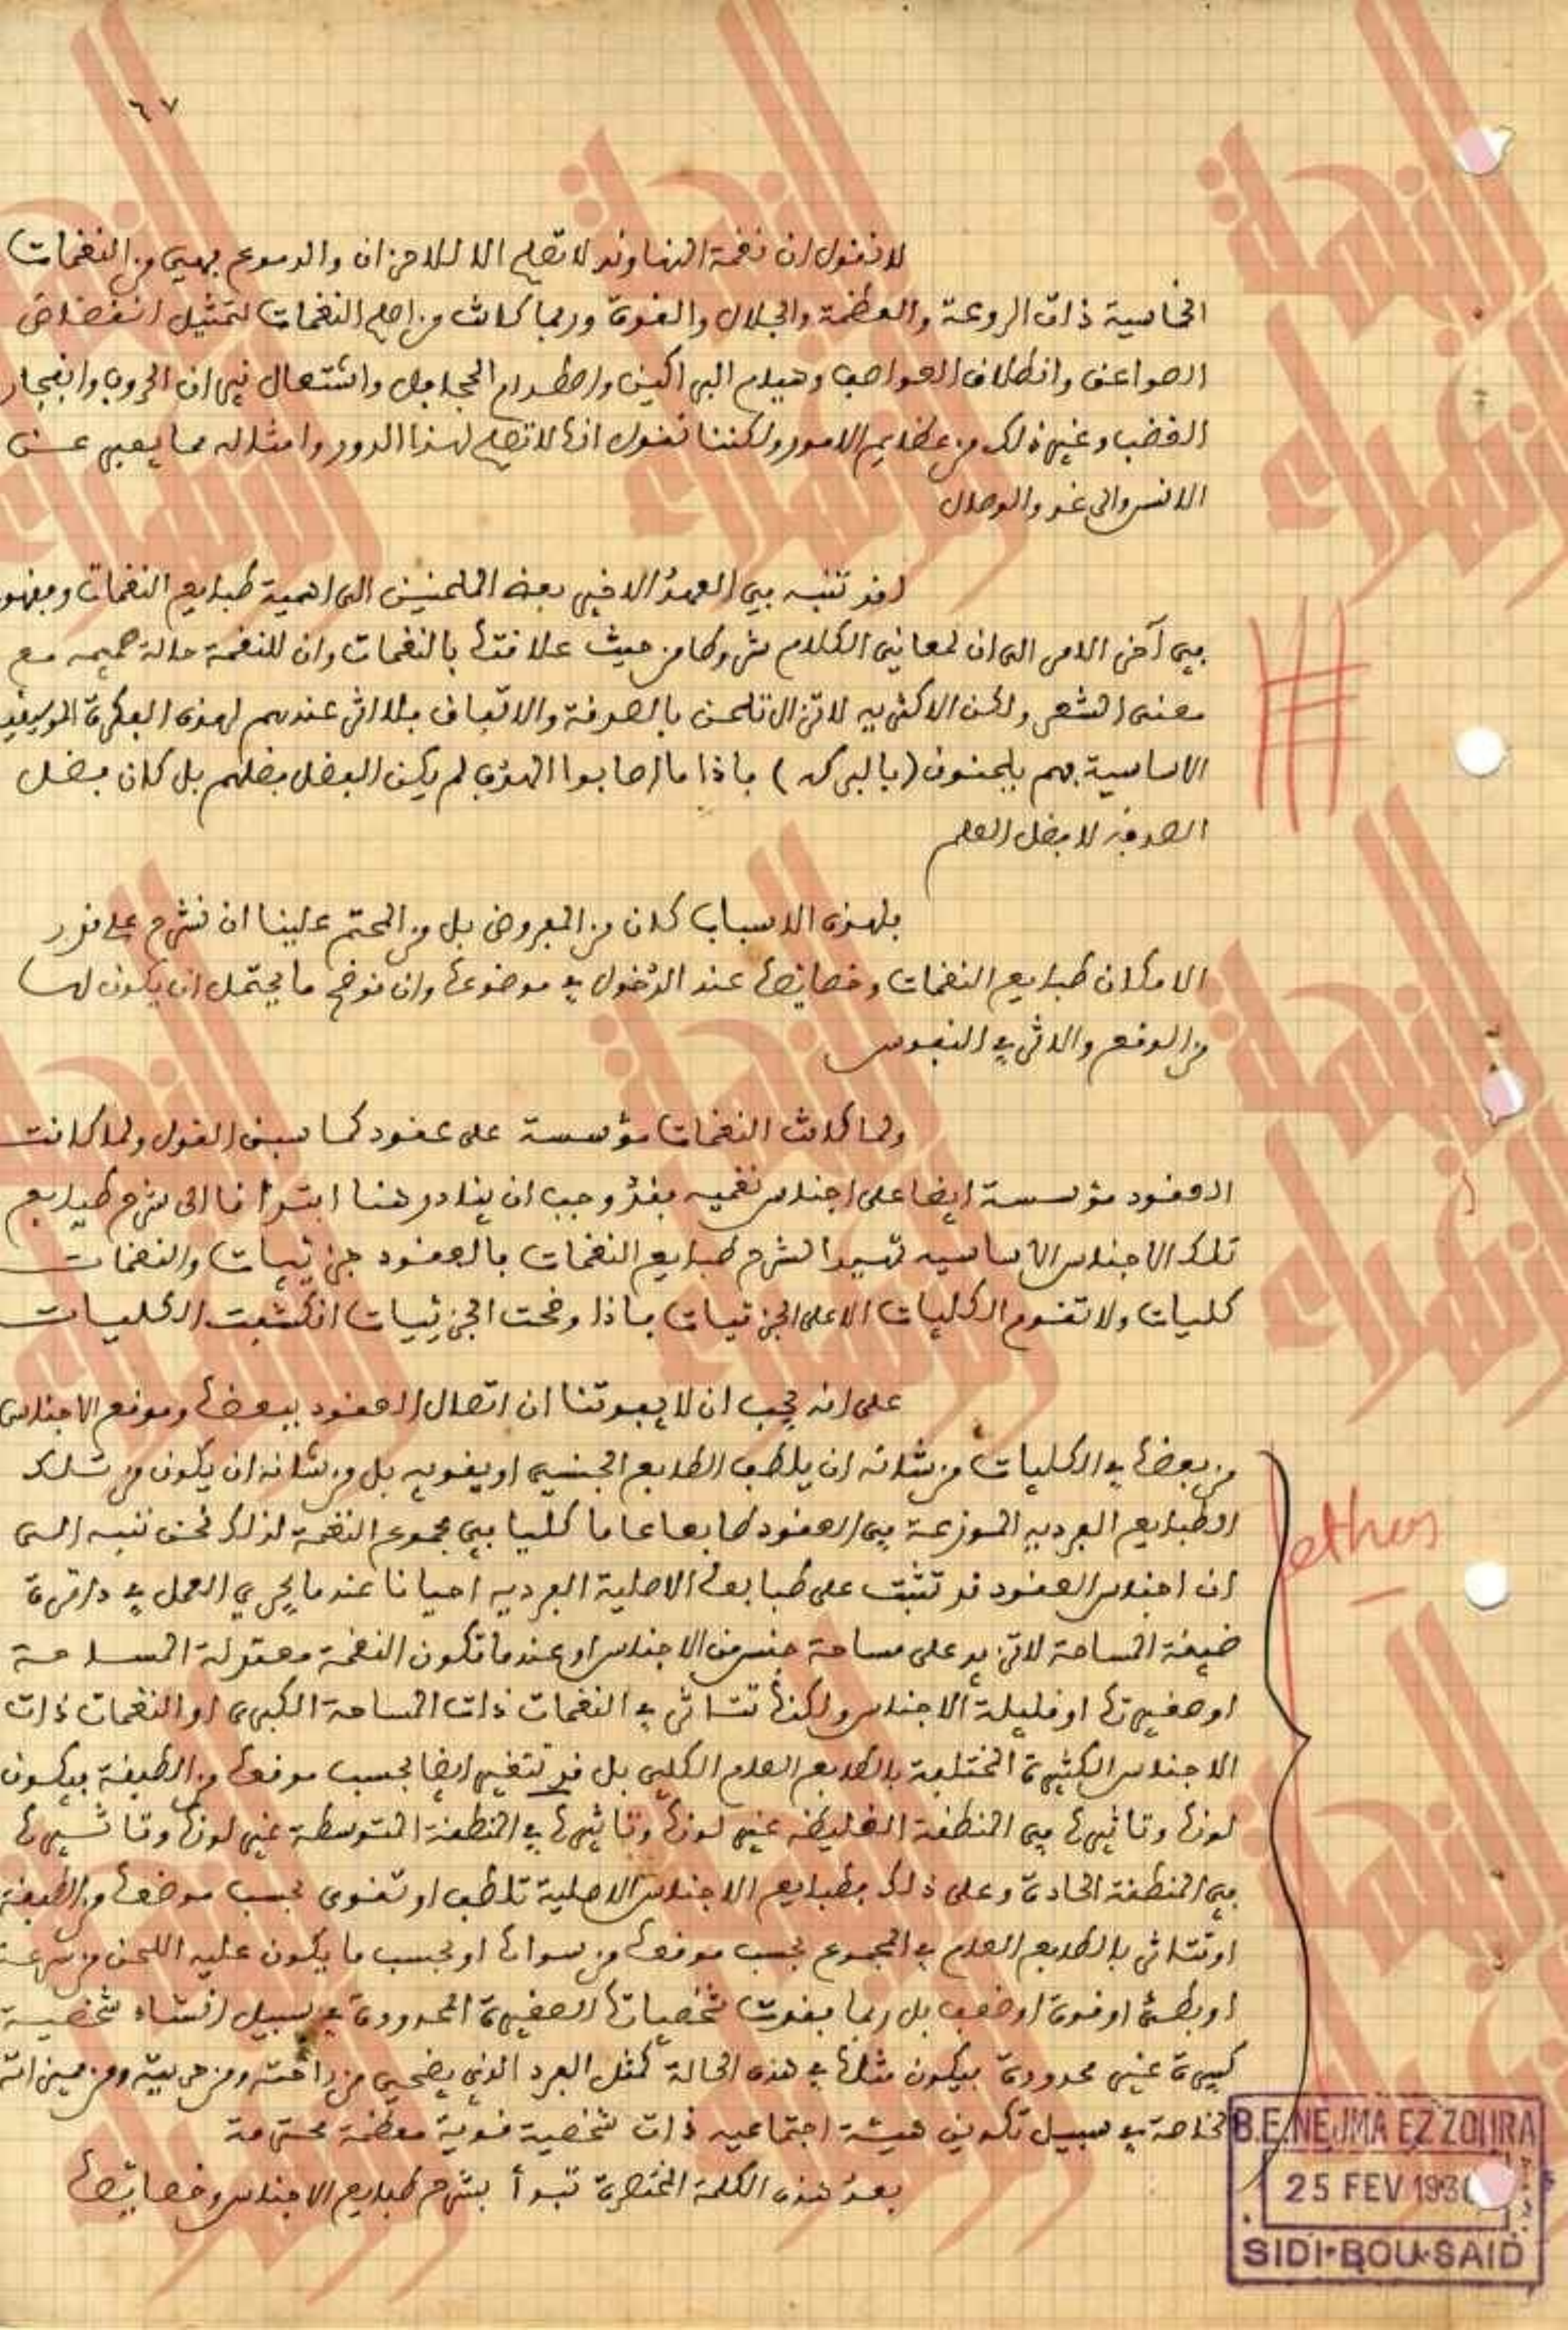 ٦٧
لا نقول ان نغمة النهاوند لا تصلح الا للاحزان والدموع فهي من النغمات
الخماسية ذات الروعة والعظمة والجلال والقوة وربما كانت من اصلح النغمات لتمثيل انقضاض
الصواعق وانطلاق العواصف وهيام البراكين واصطدام الجحافل واشتعال نيران الحروب وانفجار
الغضب وغير ذلك من عظايم الامور ولكننا نقول انها لا تصلح لهذا الدور وامثاله مما يعبر عن
الانس والرغد والوصال
لقد تنبه في العهد الاخير بعض الملحنين الى اهمية طبايع النغمات
في آخر الامر الى ان لمعاني الكلام شروطا من حيث علاقتها بالنغمات وان للنغمة حالة حميمه مع
معنى الشعر ولكن الاكثريه لا تزال تلحن بالصدفة والاتفاق فلا اثر عندهم لهذه الفكرة الموسيقية
الاساسية فهم يلحنون (بالبركه) فاذا ما اصابوا الهدف لم يكن الفضل فضلهم بل كان فضل
الصدفه لا فضل العلم
فلهذه الاسباب كان من المفروض بل من المحتم علينا ان نشرح على قدر
الامكان طبايع النغمات وخصايصها عند الدخول في موضوعها وان نوضح ما يحتمل ان يكون لها
من الوقع والاثر في النفوس
ولما كانت النغمات مؤسسة على عقود كما سبق القول ولما كانت
العقود مؤسسة ايضا على اجناس نغميه فقد وجب ان يبادر هنا ابتدائا الى شرح طبايع
تلك الاجناس الاساسيه تمهيدا لشرح طبايع النغمات فالعقود جزئيات والنغمات
كليات ولا تقوم الكليات الا على الجزئيات فاذا وضحت الجزئيات انكشفت الكليات
على انه يجب ان لا يفوتنا ان اتصال العقود ببعضها وموقع الاجناس
من بعضها في الكليات من شانه ان يلطف الطابع الجنسي او يقويه بل من شانه ان يكون من تلك
الطبايع الفرديه الموزعة في العقود طابعا عاما كليا في مجموع النغمة لذلك نحن ننبه الى
ان اجناس العقود قد تثبت على طبايعها الاصلية الفرديه احيانا عندما يجري العمل في دائرة
ضيقة المساحة لا تزيد على مساحة جنس من الاجناس او عندما تكون النغمة معتدلة المساحة
او صغيرتها او قليلة الاجناس ولكنها تتاثر في النغمات ذات المساحة الكبرى او النغمات ذات
الاجناس الكثيرة المختلفة بالطابع العام الكلي بل قد تتغير ايضا بحسب موقعها من الطبقة فيكون
لونها وتاثيرها في المنطقة الغليظه غير لونها وتاثيرها في المنطقة المتوسطة غير لونها وتاثيرها
في المنطقة الحادة وعلى ذلك فطبايع الاجناس الاصلية تلطف او تقوى بحسب موضعها من الطبقة
او تتاثر بالطابع العام في المجموع بحسب موقعها من سواها او بحسب ما يكون عليه اللحن من سرعة
او بطئ او قوة او ضعف بل ربما فقدت شخصياتها الصغيرة المحدودة في سبيل انشاء شخصية
كبيرة غير محدودة فيكون مثلها في هذه الحالة كمثل الفرد الذي يضحي من راحته ومن حريته ومن ميزاته
الخاصة في سبيل تكوين هيئة اجتماعيه ذات شخصية قوية معظمة محترمة
بعد هذه الكلمة المختصرة نبدأ بشرح طبايع الاجناس وخصايصها
ethos
B.E. NEJMA EZZOHRA
25 FEV 193
SIDI-BOU-SAID